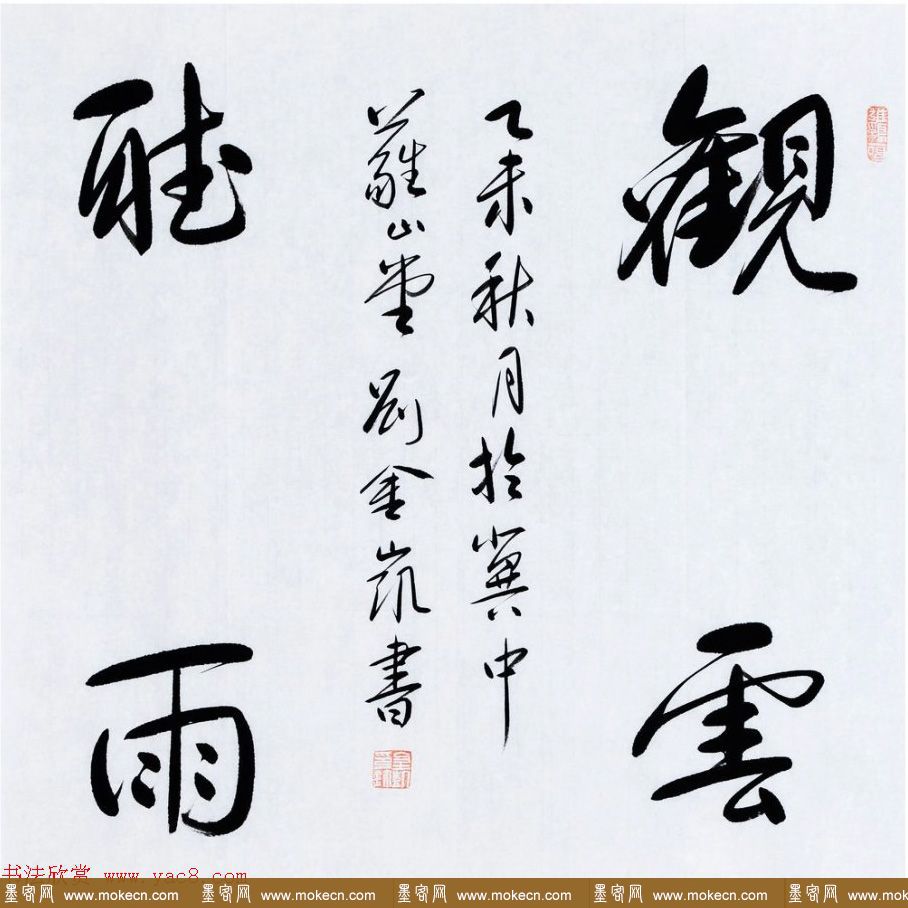 觀雲
乙未秋月於冀中
蘿山堂劉金凱書
聽雨
书法欣赏 www.yac8.com
墨客网 www.mokecn.com 墨客网 www.mokecn.com 墨客网 www.mokecn.com 墨客网 www.mokecn.com 墨客网 www.mokecn.com